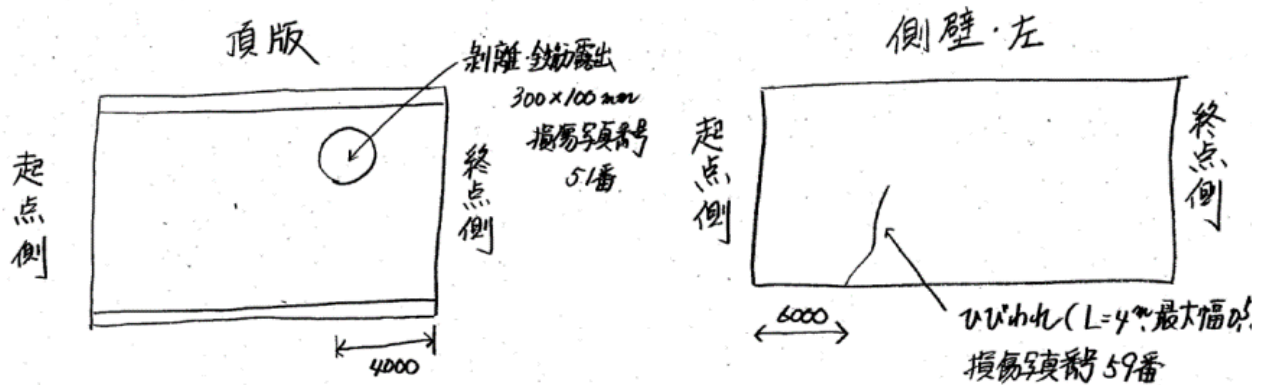 頂版
剥離・鉄筋露出
300×100mm
損傷写真番号
51番
起点側
終点側
4000
側壁・左
起点側
終点側
6000
ひびわれ(L=4m,最大幅0.5
損傷写真番号59番